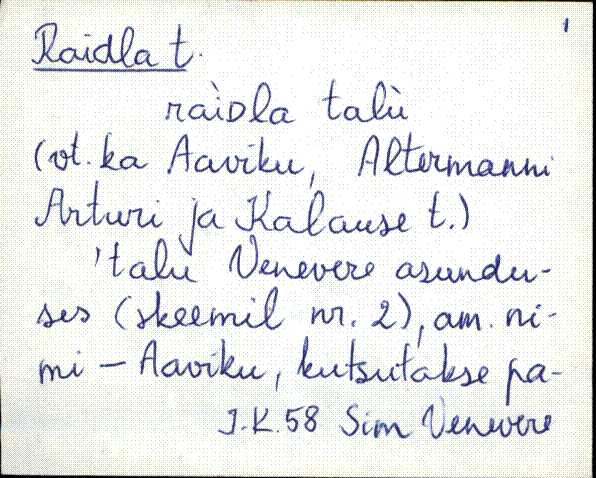 1
Raidla t.
raìDla talù
(vt. ka Aaviku, Altermanni
Arturi ja Kalause t.)
'talu Venevere asundu-
ses (skeemil nr. 2), am. ni-
mi – Aaviku, kutsutakse pa-
J.K. 58 Sim Venevere